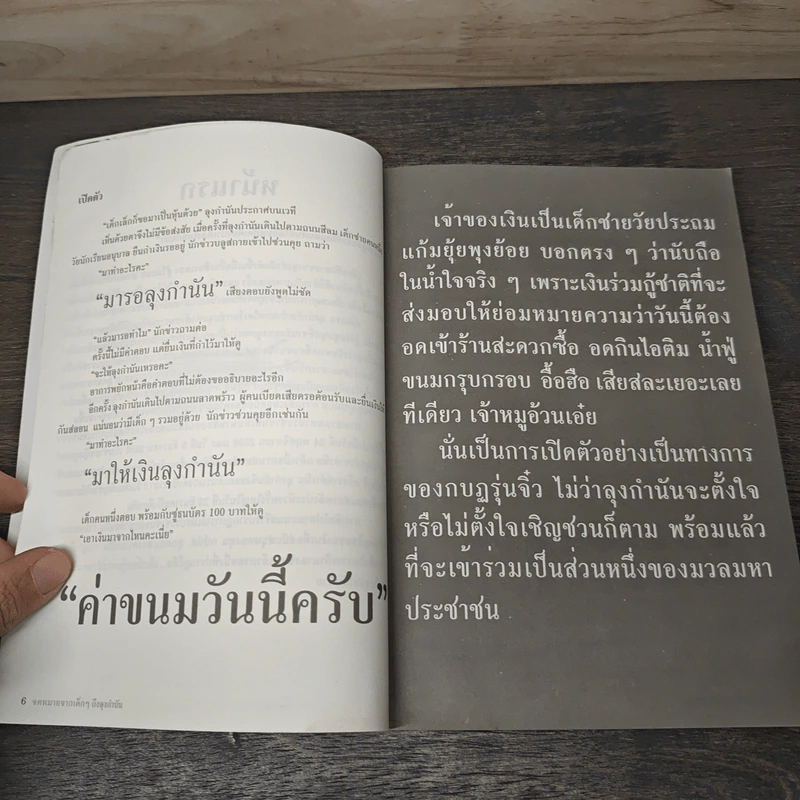 เปิดตัว
“เด็กเล็กก็ขอมาเป็นหุ้นด้วย” ลุงกำนันประกาศบนเวที
เห็นด้วยตาจึงไม่มีข้อสงสัย เมื่อครั้งที่ลุงกำนันเดินไปตามถนนสีลม เด็กชายคนหนึ่ง
วัยนักเรียนอนุบาล ยืนกำเงินรออยู่ นักข่าวบลูสกายเข้าไปชวนคุย ถามว่า
“มาทำอะไรคะ”
“มารอลุงกำนัน” เสียงตอบยังพูดไม่ชัด
“แล้วมารอทำไม” นักข่าวถามต่อ
ครั้งนี้ไม่มีคำตอบ แต่ยื่นเงินที่กำไว้มาให้ดู
“จะให้ลุงกำนันเหรอคะ”
อาการพยักหน้าคือคำตอบที่ไม่ต้องขออธิบายอะไรอีก
อีกครั้ง ลุงกำนันเดินไปตามถนนลาดพร้าว ผู้คนเบียดเสียดรอต้อนรับและยื่นเงินให้
กันสลอน แน่นอนว่ามีเด็ก ๆ รวมอยู่ด้วย นักข่าวชวนคุยอีกเช่นกัน
“มาทำอะไรคะ”
“มาให้เงินลุงกำนัน”
เด็กคนหนึ่งตอบ พร้อมกับชูธนบัตร 100 บาทให้ดู
“เอาเงินมาจากไหนคะเนี่ย”
“ค่าขนมวันนี้ครับ”
6 จดหมายจากเด็กๆ ถึงลุงกำนัน
เจ้าของเงินเป็นเด็กชายวัยประถม
แก้มยุ้ยพุงย้อย บอกตรง ๆ ว่านับถือ
ในน้ำใจจริง ๆ เพราะเงินร่วมกู้ชาติที่จะ
ส่งมอบให้ย่อมหมายความว่าวันนี้ต้อง
อดเข้าร้านสะดวกซื้อ อดกินไอติม น้ำฟู่
ขนมกรุบกรอบ อื้อฮือ เสียสละเยอะเลย
ทีเดียว เจ้าหมูอ้วนเอ๋ย
นั่นเป็นการเปิดตัวอย่างเป็นทางการ
ของกบฏรุ่นจิ๋ว ไม่ว่าลุงกำนันจะตั้งใจ
หรือไม่ตั้งใจเชิญชวนก็ตาม พร้อมแล้ว
ที่จะเข้าร่วมเป็นส่วนหนึ่งของมวลมหา
ประชาชน